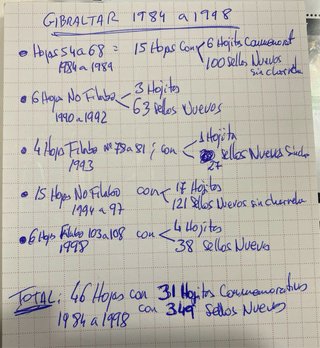 GIBRALTAR 1984 a 1998
• Hojas 54 a 68 = 15 Hojas con 6 Hojitas Conmemorat
1984 a 1989 100 Sellos Nuevos
sin charnela
• 6 Hojas No Filabo 3 Hojitas
1990 a 1992 63 Sellos Nuevos
• 4 Hojas Filabo Nº 78 a 81; con 1 Hojita
1993 27 Sellos Nuevos Sinch
• 15 Hojas No Filabo con 17 Hojitas
1994 a 97 121 Sellos Nuevos sin charnela
• 6 Hojas Filabo 103 a 108 con 4 Hojitas
1998 38 Sellos Nuevos
TOTAL: 46 Hojas con 31 Hojitas Conmemorativas
1984 a 1998 con 349 Sellos Nuevos